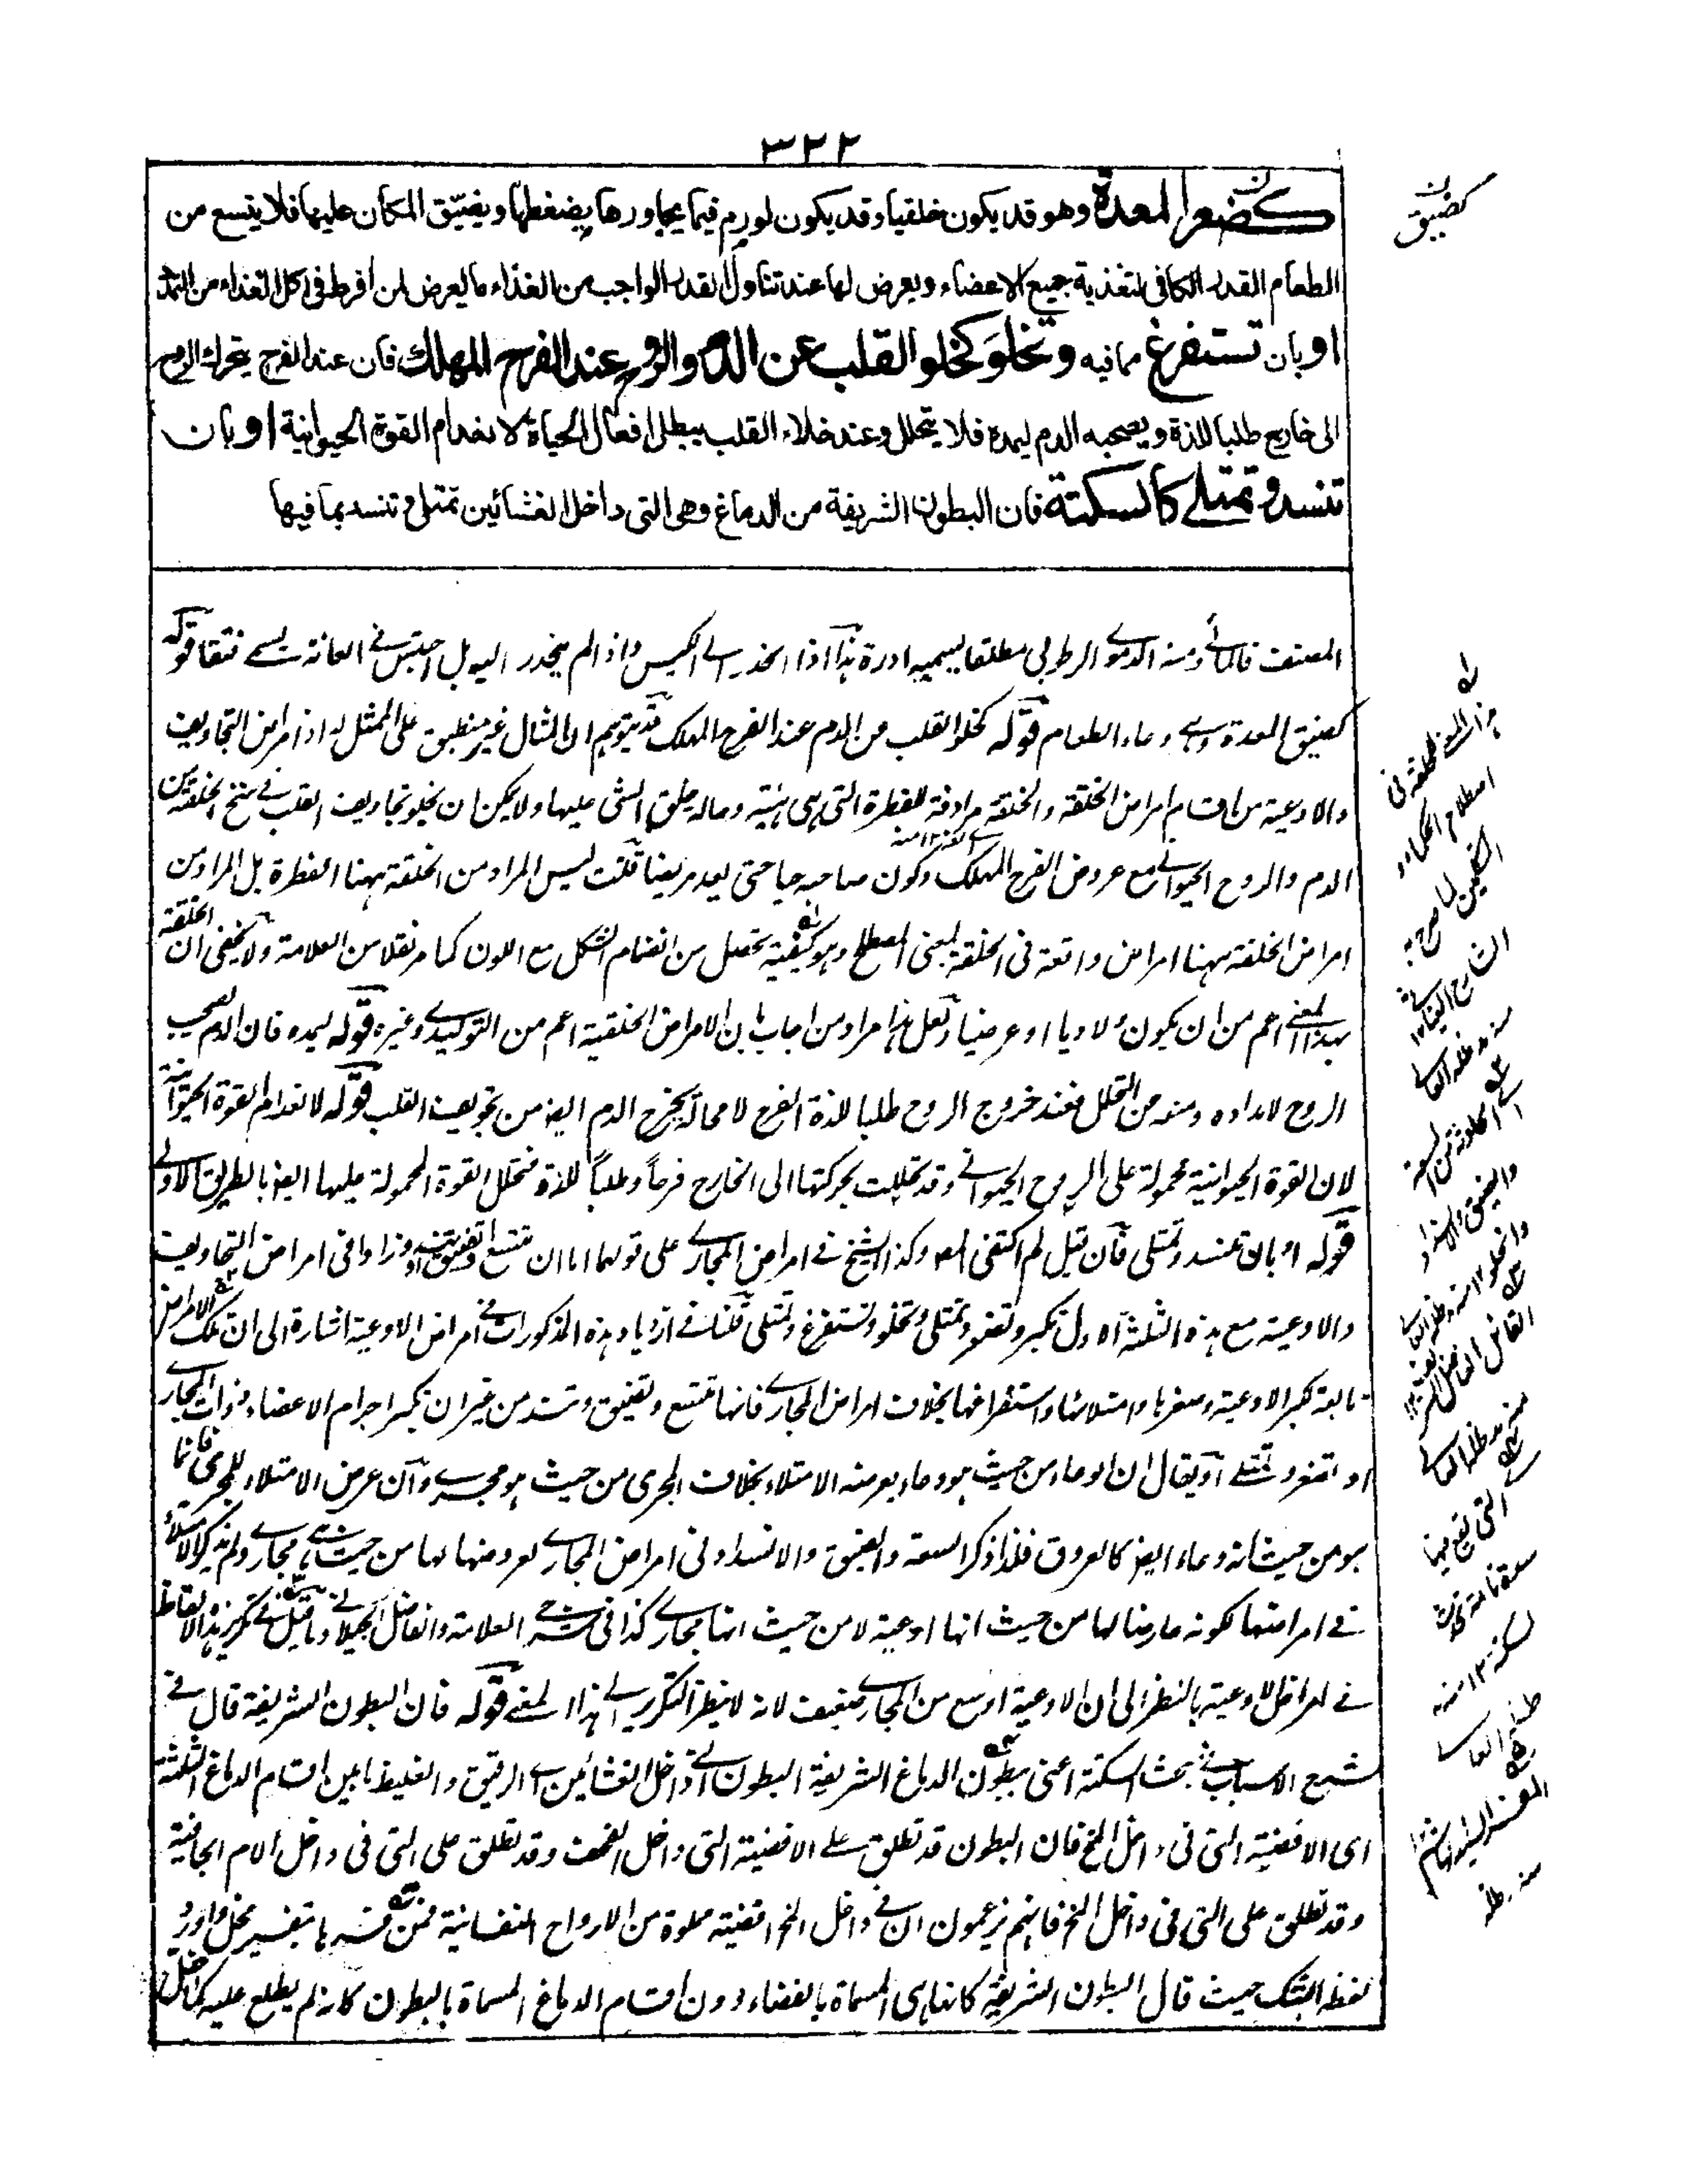 ٣٢٢
كصغر المعدة وهو قد يكون خلقيا وقد يكون لورم فيما يجاورها يضغطها ويضيق المكان عليها فلا يتسع من
الطعام القدر الكافى لتغذية جميع الاعضاء ويعرض لها عند تناول القدر الواجب من الغذاء ما يعرض لمن افرط فى اكل الغذاء من التمدد
او بان تستفرغ مما فيه وتخلو كخلو القلب عن الدم والروح عند الفرح المهلك فان عند الفرح يتحرك الروح
الى خارج طلبا للذة ويصحبه الدم ليمده فلا يتحلل وعند خلاء القلب يبطل افعال الحياة لانعدام القوة الحيوانية او بان
تنسد وتمتلى كالسكتة فان البطون الشريفة من الدماغ وهى التى داخل الغشائين تمتلى وتنسد بما فيها
كضيق
المصنف مطلقا يسميه ادرة هذا اذا انحدر الى الكيس واذا لم ينحدر اليه بل احتبس فى العانة يسمى فتقا قوله
كضيق المعدة وهى وعاء الطعام قوله كخلو القلب من الدم عند الفرح المهلك قد يتوهم ان المثال غير منطبق على الممثل له اذ امراض التجاويف
والاوعية من اقسام امراض الخلقة والخلقة مرادفة للفطرة التى هى هيئة وحالة خلق الشى عليها ولا يمكن ان يخلو تجاويف القلب فى الخلقة من
الدم والروح الحيوانى مع عروض الفرح المهلك وكون صاحبه حيا حتى يعد مريضا قلت ليس المراد من الخلقة ههنا الفطرة بل المراد من
امراض الخلقة ههنا امراض واقعة فى الخلقة بالمعنى المصطلح وهو كيفية تحصل من انضمام الشكل مع اللون كما مر نقلا من العلامة ولا يخفى ان الخلقة
بهذا المعنى اعم من ان يكون ولاديا او عرضيا ولعل هذا مراد من اجاب بان الامراض الخلقية اعم من التوليدى وغيره قوله ليمده فان الدم يصحب
الروح لامداده ومنعه من التحلل فعند خروج الروح طلبا للذة الفرح لا محالة يخرج الدم ايضا من تجويف القلب قوله لانعدام القوة الحيوانية
لان القوة الحيوانية محمولة على الروح الحيوانى وقد تحللت بحركتها الى الخارج فرحاً وطلباً للذة فتحلل القوة المحمولة عليها ايضا بالطريق الاولى
قوله او بان تنسد وتمتلى فان قيل لم اكتفى المص وكذا الشيخ فى امراض المجارى على قولهما اما ان تتسع او تضيق او تنسد وزادا فى امراض التجاويف
والاوعية مع هذه الثلثة الاول تكبر وتصغر وتمتلى وتخلو وتستفرغ وتمتلى قلنا فى ازدياد هذه المذكورات فى امراض الاوعية اشارة الى ان تلك الامراض
تابعة لكبر الاوعية وصغرها وامتلائها واستفراغها بخلاف امراض المجارى فانها تتسع وتضيق وتنسد من غير ان تكبر اجرام الاعضاء ذوات المجارى
او تصغر وتمتلى او يقال ان الوعاء من حيث هو وعاء يعرضه الامتلاء بخلاف المجرى من حيث هو مجرى وان عرض الامتلاء للمجرى فانما
هو من حيث انه وعاء ايضا كالعروق فلذا ذكر السعة والضيق والانسداد فى امراض المجارى لعروضها لها من حيث انها مجارى ولم يذكر الامتلاء
فى امراضها لكونه عارضا لها من حيث انها اوعية لا من حيث انها مجارى كذا فى شرح العلامة والفاضل الجيلانى وما قيل فى تكرير هذه الالفاظ
فى امراض الاوعية بالنظر الى ان الاوعية اوسع من المجارى ضعيف لانه لا ينظر التكرير الى هذا المعنى قوله فان البطون الشريفة قال فى
شرح الاسباب فى بحث السكتة اعنى ببطون الدماغ الشريفة البطون التى داخل الغشائين اى الرقيق والغليظ بين اقسام الدماغ الثلثة
اى الافضية التى فى داخل المخ فان البطون قد تطلق على الافضية التى داخل القحف وقد تطلق على التى فى داخل الام الجافية
وقد تطلق على التى فى داخل المخ فانهم يزعمون ان فى داخل المخ افضية مملوة من الارواح النفسانية فمن فسرها بتفسير مخل واورد
لفظ الشك حيث قال البطون الشريفة كانها هى المسماة بالفضاء دون اقسام الدماغ المسماة بالبطون كانه لم يطلع عليه كما قال